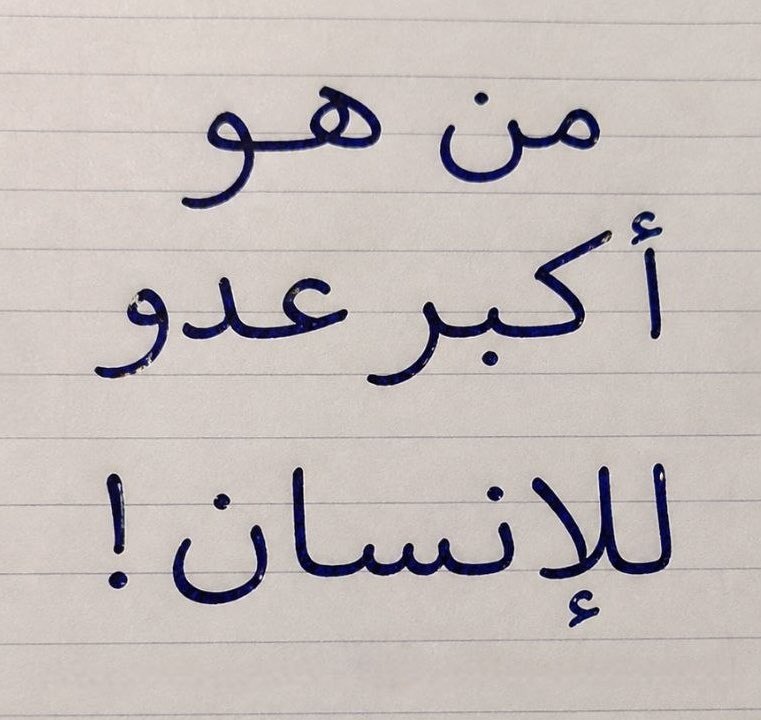 من هو
أكبر عدو
للإنسان!